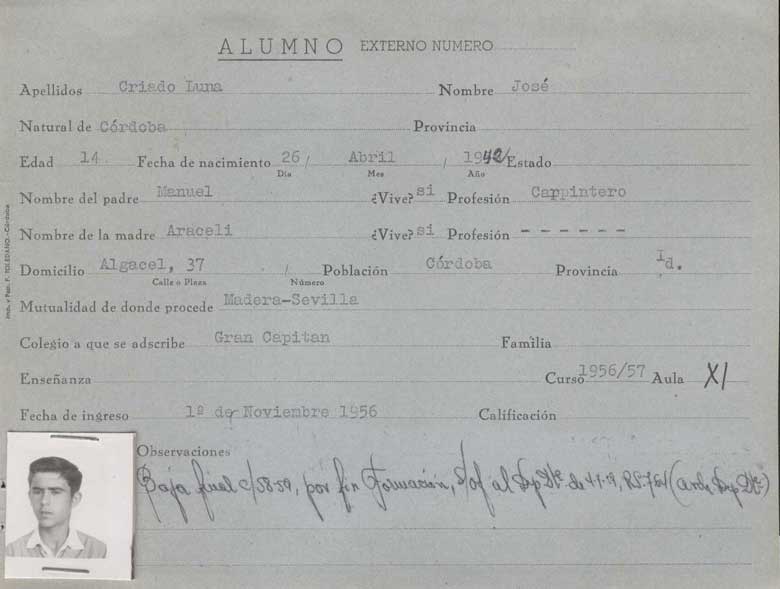 ALUMNO EXTERNO NUMERO
Apellidos Criado Luna Nombre José
Natural de Córdoba Provincia
Edad 14 Fecha de nacimiento 26 / Abril / 1942 Estado
Día Mes Año
Nombre del padre Manuel ¿Vive? si Profesión Carpintero
Nombre de la madre Araceli ¿Vive? si Profesión - - - - - -
Domicilio Algacel, 37 / Población Córdoba Provincia Id.
Calle o Plaza Número
Mutualidad de donde procede Madera-Sevilla
Colegio a que se adscribe Gran Capitan Familia
Enseñanza Curso 1956/57 Aula XI
Fecha de ingreso 1º de Noviembre 1956 Calificación
Observaciones
Baja final c/58 59, por fin Formación, s/of al Dep
Imp. y Pap. F. TOLEDANO.-Córdoba